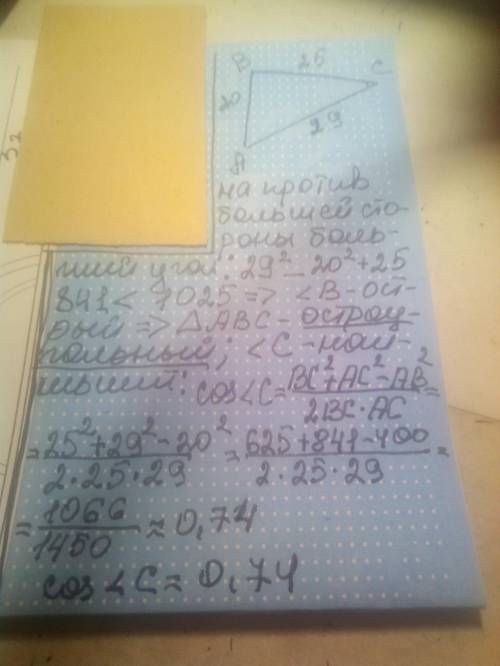 B 25 C
20
29
A
на против
большей сто-
роны боль-
ший угол: 29² _ 20²+25
841 < 1025 => <B-ост-
рый => △ABC - остроу-
гольный; <C - наи-
ньший: cos<C = BC²+AC²-AB² / 2BC·AC =
= 25²+29²-20² / 2·25·29 = 625+841-400 / 2·25·29 =
= 1066 / 1450 ≈ 0,74
cos<C ≈ 0,74